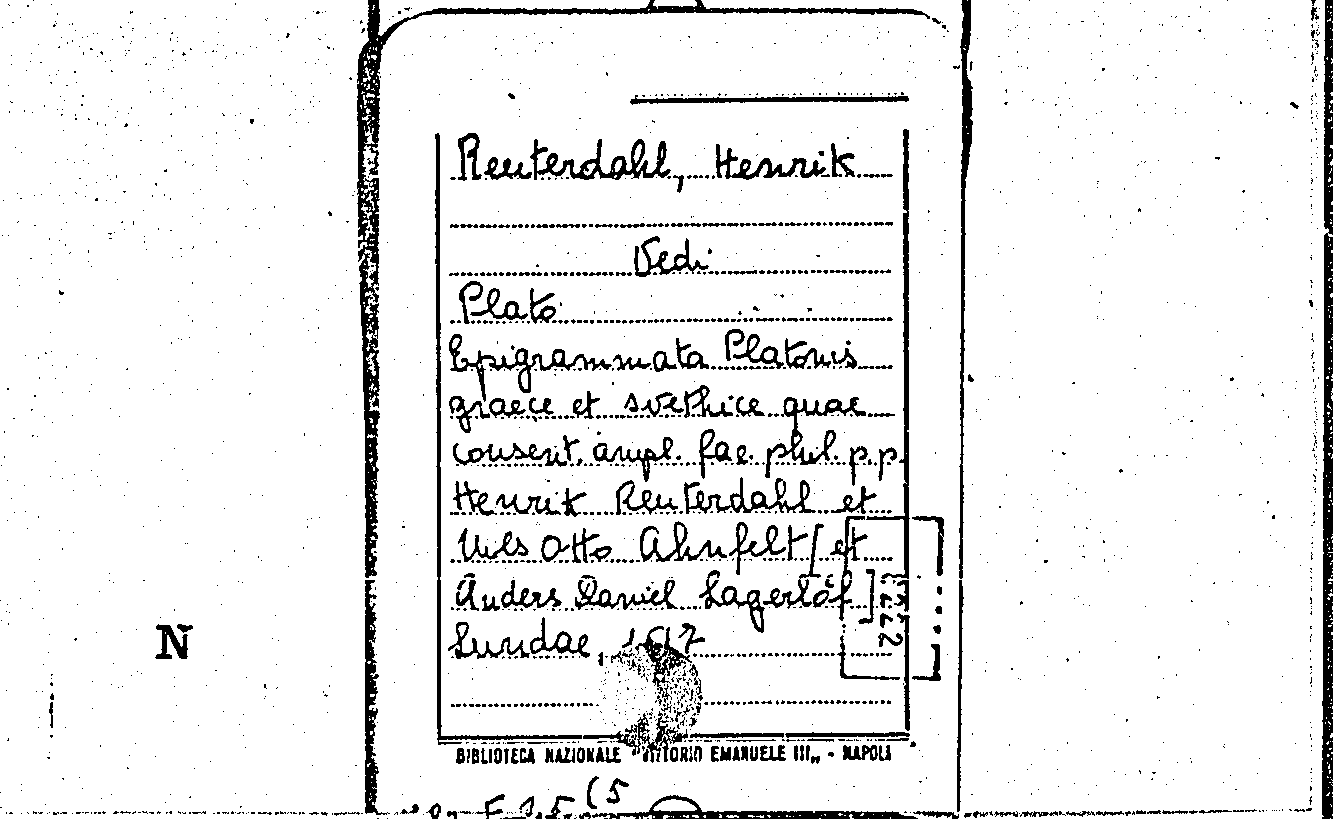 Reuterdahl, Henrik
Vedi
Plato
Epigrammata Platonis
graece et svethice quae
consent. ampl. fac. phil. p.p.
Henrik Reuterdahl et
Nils Otto Ahnfelt [et
Anders Daniel Lagerlöf]
Lundae,
N
BIBLIOTECA NAZIONALE "VITTORIO EMANUELE III„ - NAPOLI